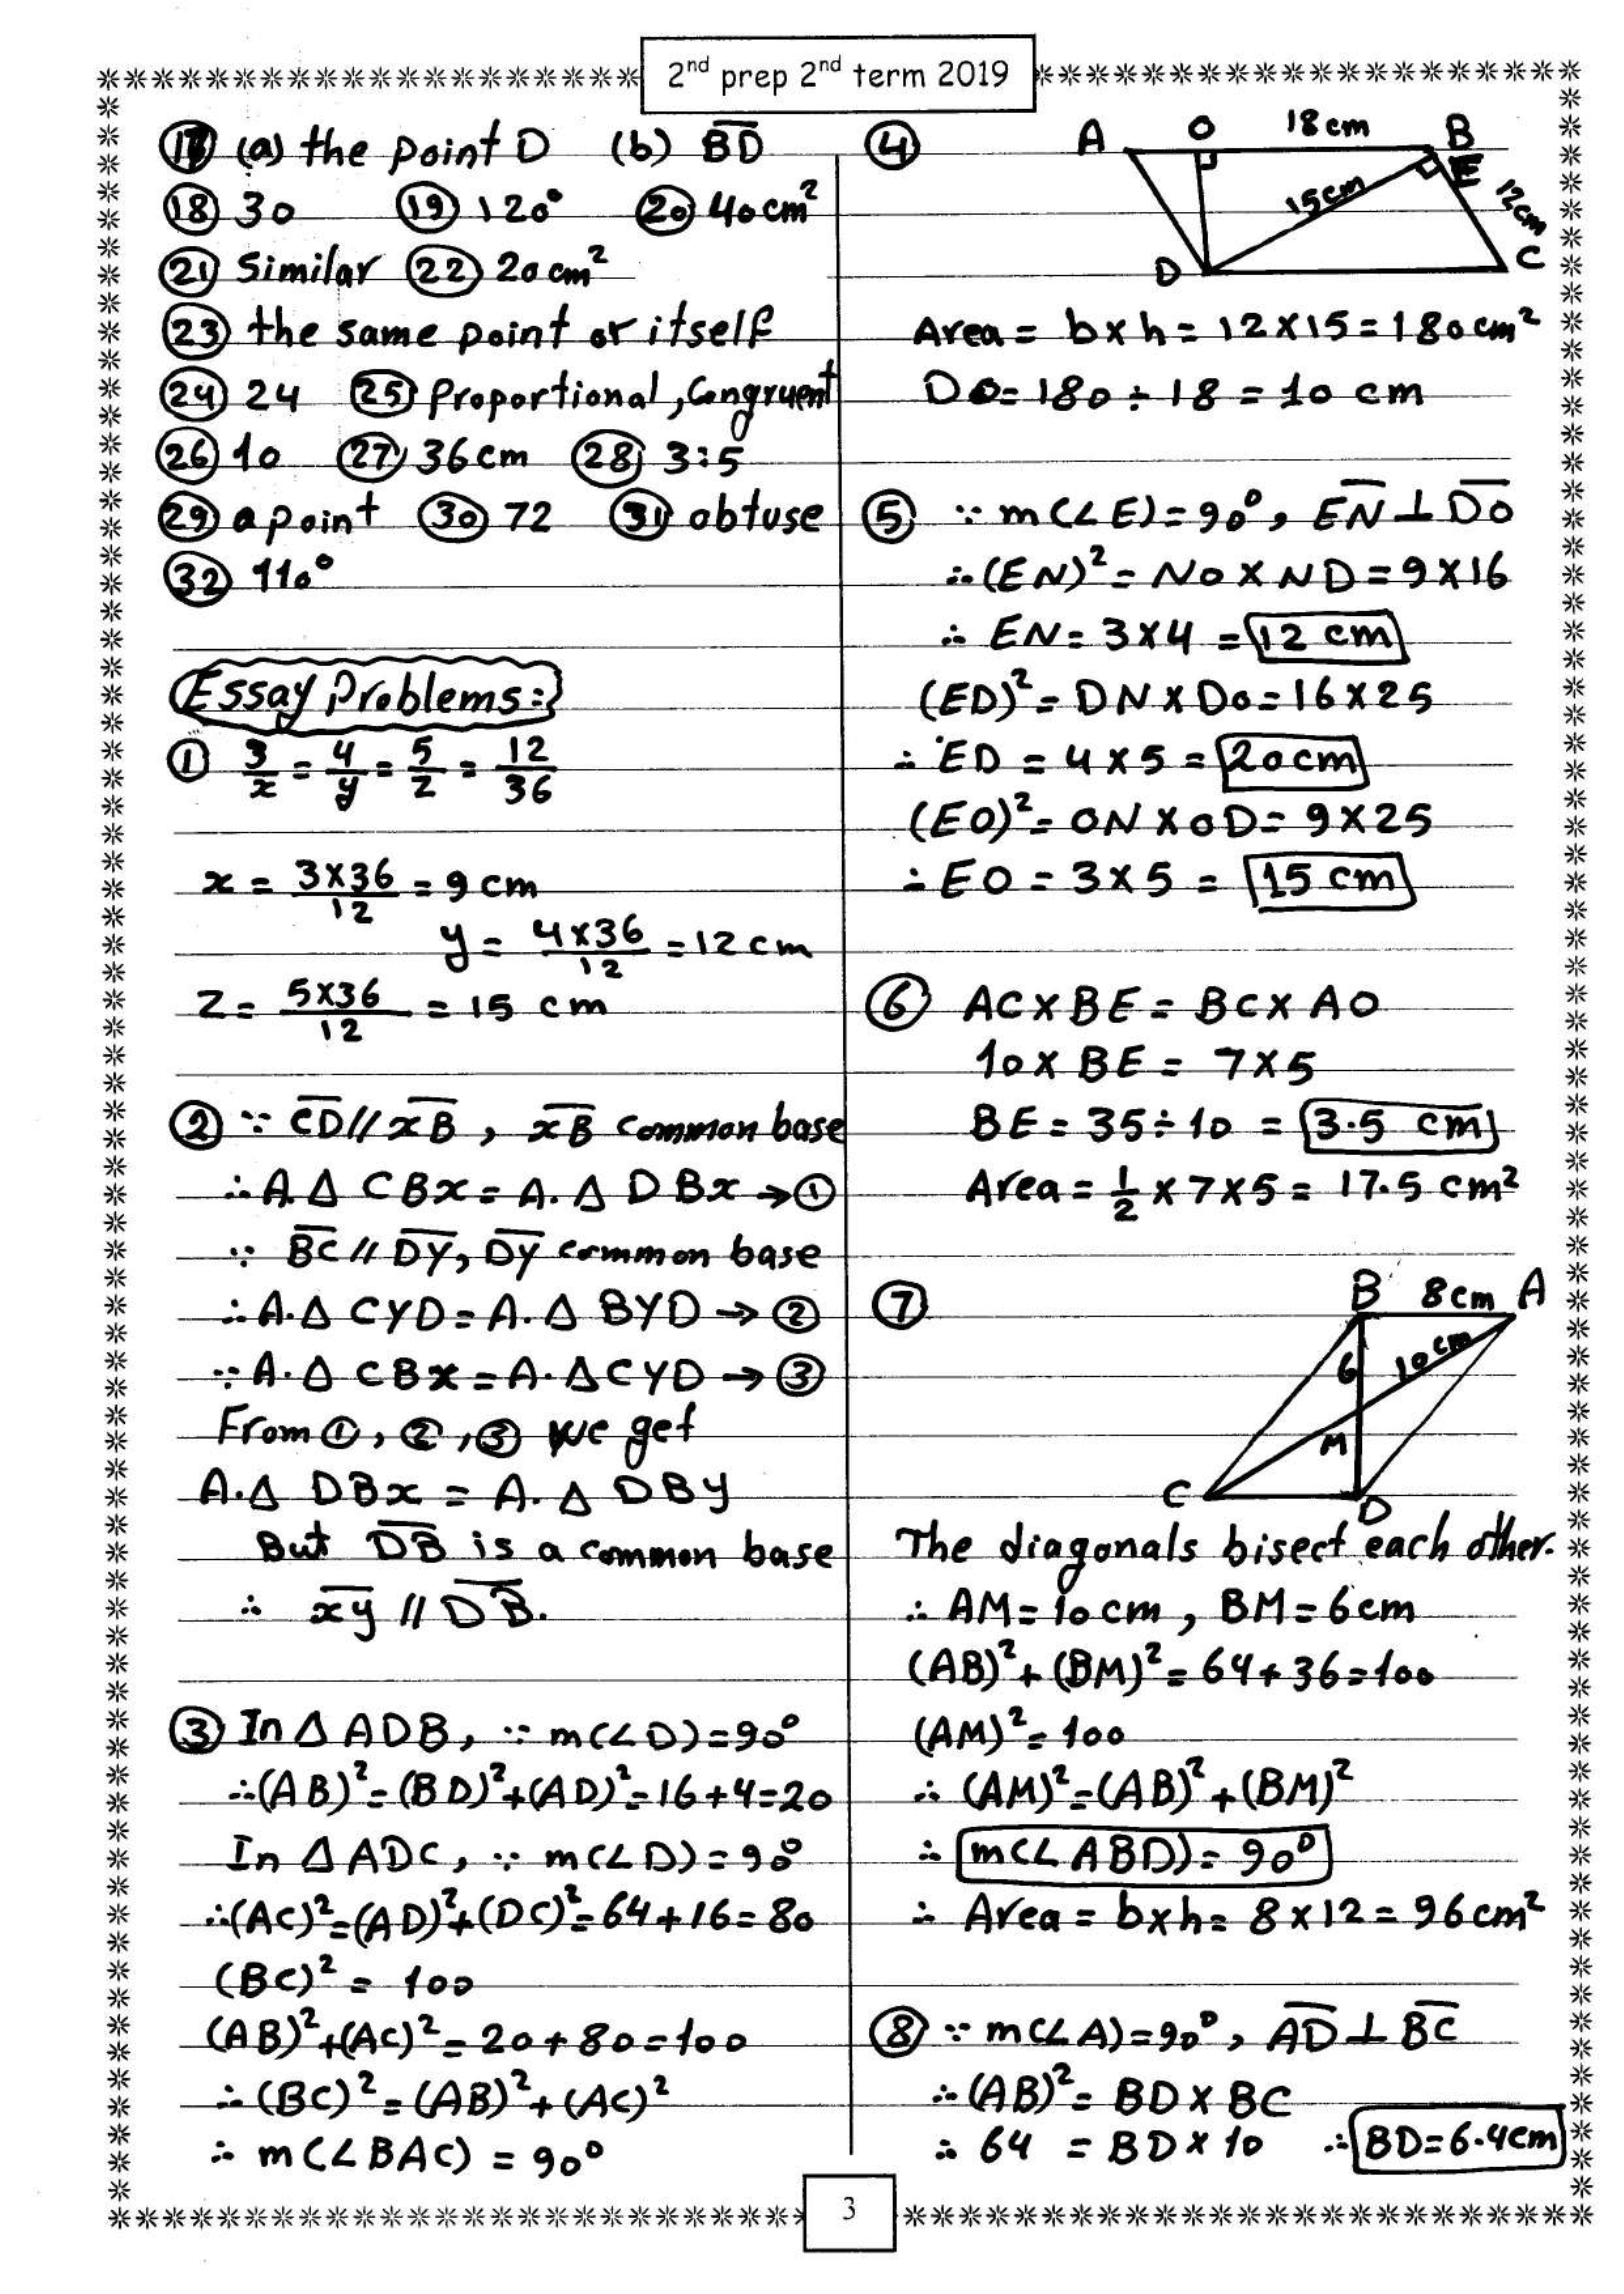 2nd prep 2nd term 2019
17 (a) the point D (b) BD
18 30 19 120° 20 40 cm²
21 Similar 22 20 cm²
23 the same point or itself
24 24 25 Proportional, Congruent
26 10 27 36 cm 28 3:5
29 a point 30 72 31 obtuse
32 110°
Essay Problems:
1 3/x = 4/y = 5/z = 12/36
x = 3×36/12 = 9 cm
y = 4×36/12 = 12 cm
z = 5×36/12 = 15 cm
2 ∵ CD // xB, xB common base
∴ A. Δ CBx = A. Δ DBx → 1
∵ BC // DY, DY common base
∴ A. Δ CYD = A. Δ BYD → 2
∵ A. Δ CBx = A. Δ CYD → 3
From 1, 2, 3 we get
A. Δ DBx = A. Δ DBy
But DB is a common base
∴ xy // DB.
3 In Δ ADB, ∵ m(∠D) = 90°
∴ (AB)² = (BD)² + (AD)² = 16 + 4 = 20
In Δ ADC, ∵ m(∠D) = 90°
∴ (AC)² = (AD)² + (DC)² = 64 + 16 = 80
(BC)² = 100
(AB)² + (AC)² = 20 + 80 = 100
∴ (BC)² = (AB)² + (AC)²
∴ m(∠BAC) = 90°
4 A O 18 cm B
E
15 cm 12 cm
D C
Area = b×h = 12×15 = 180 cm²
DO = 180 ÷ 18 = 10 cm
5 ∵ m(∠E) = 90°, EN ⊥ DO
∴ (EN)² = NO × ND = 9×16
∴ EN = 3×4 = 12 cm
(ED)² = DN × DO = 16×25
∴ ED = 4×5 = 20 cm
(EO)² = ON × OD = 9×25
∴ EO = 3×5 = 15 cm
6 AC × BE = BC × AO
10 × BE = 7×5
BE = 35 ÷ 10 = 3.5 cm
Area = 1/2 × 7×5 = 17.5 cm²
7 B 8 cm A
6 10 cm
M
C D
The diagonals bisect each other.
∴ AM = 10 cm, BM = 6 cm
(AB)² + (BM)² = 64 + 36 = 100
(AM)² = 100
∴ (AM)² = (AB)² + (BM)²
∴ m(∠ABD) = 90°
∴ Area = b×h = 8×12 = 96 cm²
8 ∵ m(∠A) = 90°, AD ⊥ BC
∴ (AB)² = BD × BC
∴ 64 = BD × 10 ∴ BD = 6.4 cm
3